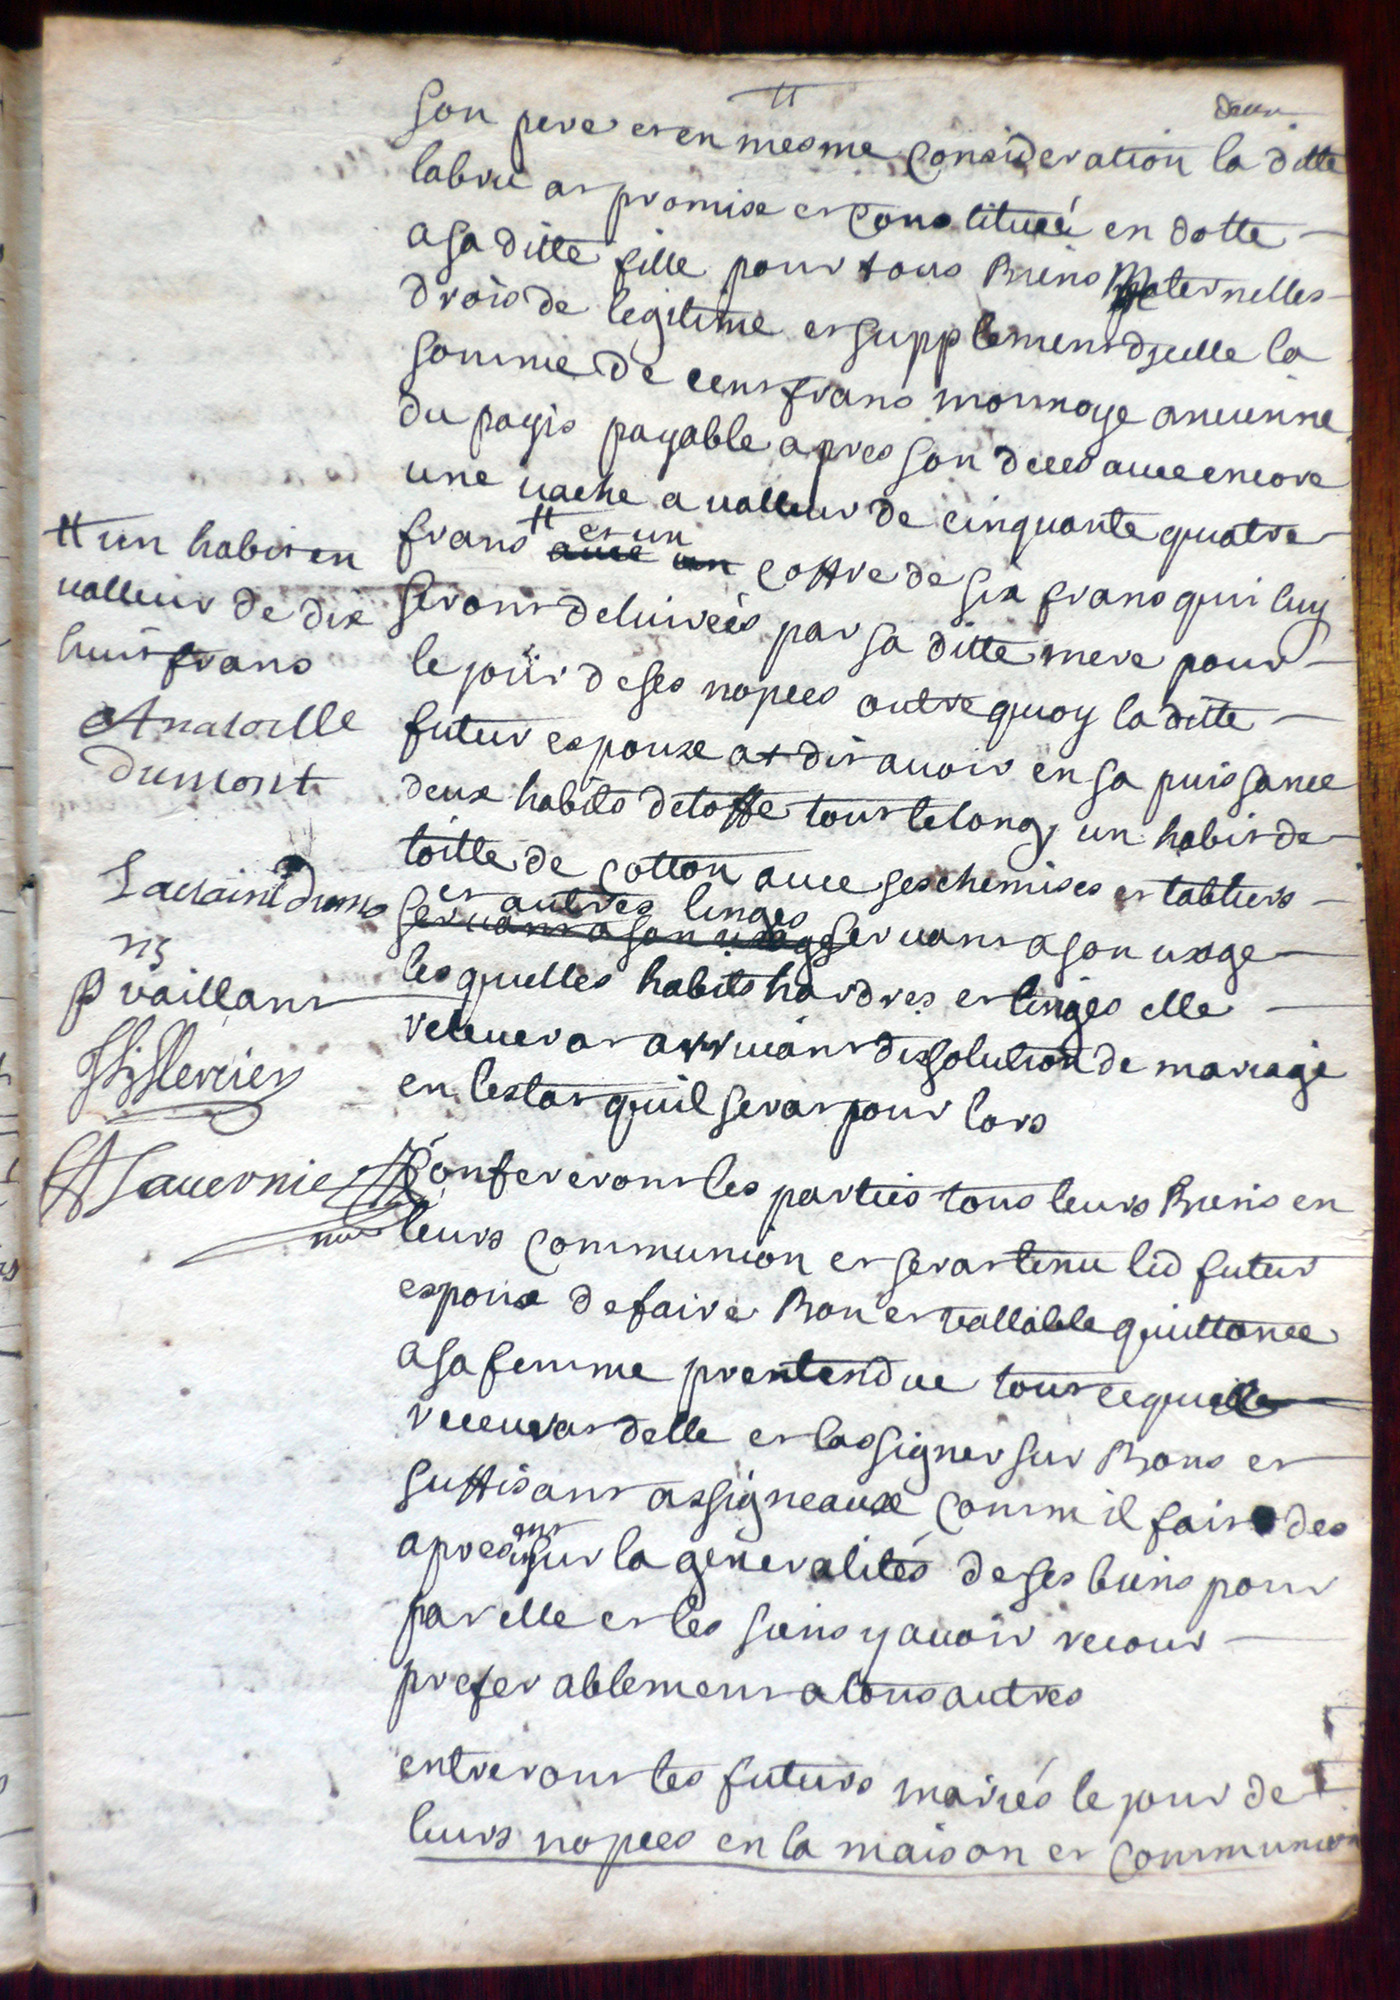 deux
son pere et en mesme consideration la ditte
labru at promise et constitueé en dotte
a sa ditte fille pour tous Biens Maternelles
drois de legitime et supplement djcelle la
somme de cent frans monnoye ancienne
du payis payable apres son deces avec encore
une vache a valleur de cinquante quatre
frans # et un avec un coffre de six frans qui luy
seront delivreés par sa ditte mere pour
le joür de ses nopces outre quoy la ditte
futur espouse at dit avoir en sa puissance
deux habits detoffe tout le long, un habit de
toille de cotton avec ses chemises et tabliers
et autres linges
servant a son usage servant a son usage
lesquelles habits hardres et linges elle
relevera arrivant dissolution de mariage
en lestat quil serat pour lors
Confereront les parties tous leurs Biens en
leurs communion et serat tenu led futur
espoux de faire Bon et vallable quittance
a sa femme prentendue tout ce quelle
recevrat delle et lassigner sur Bons et
suffisant assigneaux comm il fait des
apresent sur la generalités de ses biens pour
par elle et les siens y avoir recour
preferablement a tous autres
entreront les futurs mariés le jour de
leurs nopces en la maison et communion
# un habit en
valleur de dix
huit frans
Anatoille
dumont
P vaillant
Mercier
Lavernie